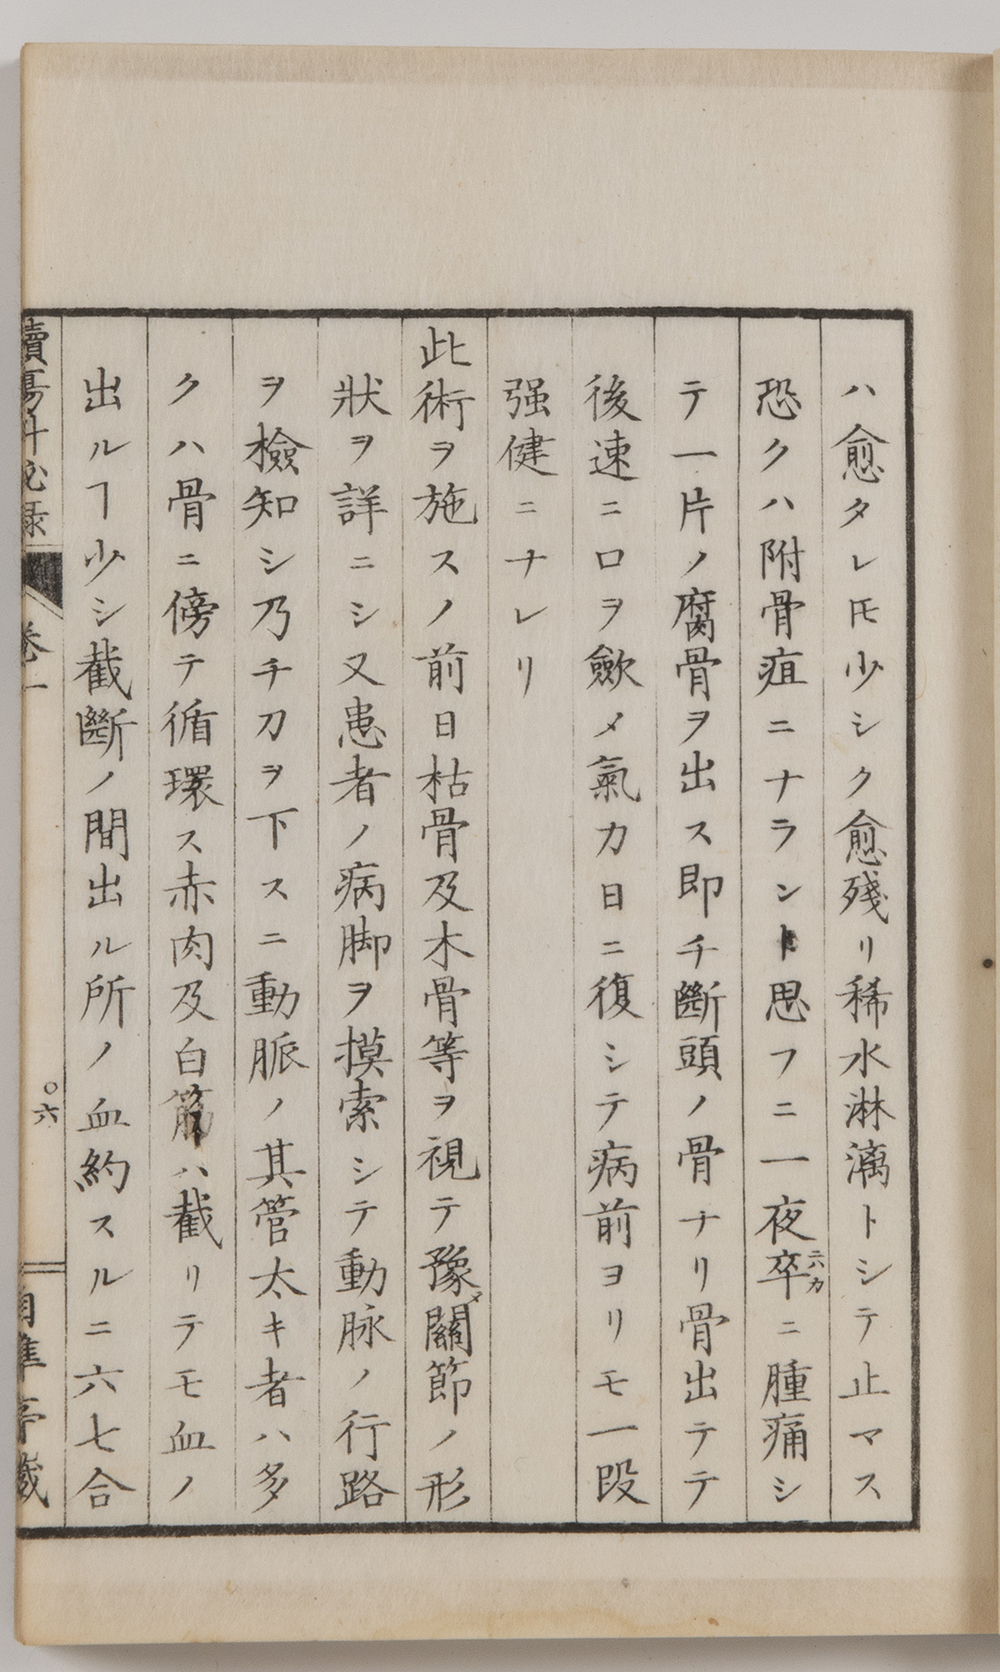 ハ愈タレ𪜈少シク愈残リ稀水淋漓トシテ止マス
恐クハ附骨疽ニナラント思フニ一夜卒ニ腫痛シ
ニハカ
テ一片ノ腐骨ヲ出ス即チ斷頭ノ骨ナリ骨出テテ
後速ニ口ヲ歛メ氣力日ニ復シテ病前ヨリモ一段
强健ニナレリ
此術ヲ施スノ前日枯骨及木骨等ヲ視テ豫メ關節ノ形
狀ヲ詳ニシ又患者ノ病脚ヲ摸索シテ動脉ノ行路
ヲ檢知シ乃チ刀ヲ下スニ動脈ノ其管太キ者ハ多
クハ骨ニ傍テ循環ス赤肉及白筋ハ截リテモ血ノ
出ルヿ少シ截斷ノ間出ル所ノ血約スルニ六七合
續瘍科秘录
卷一
〇六
自準亭藏